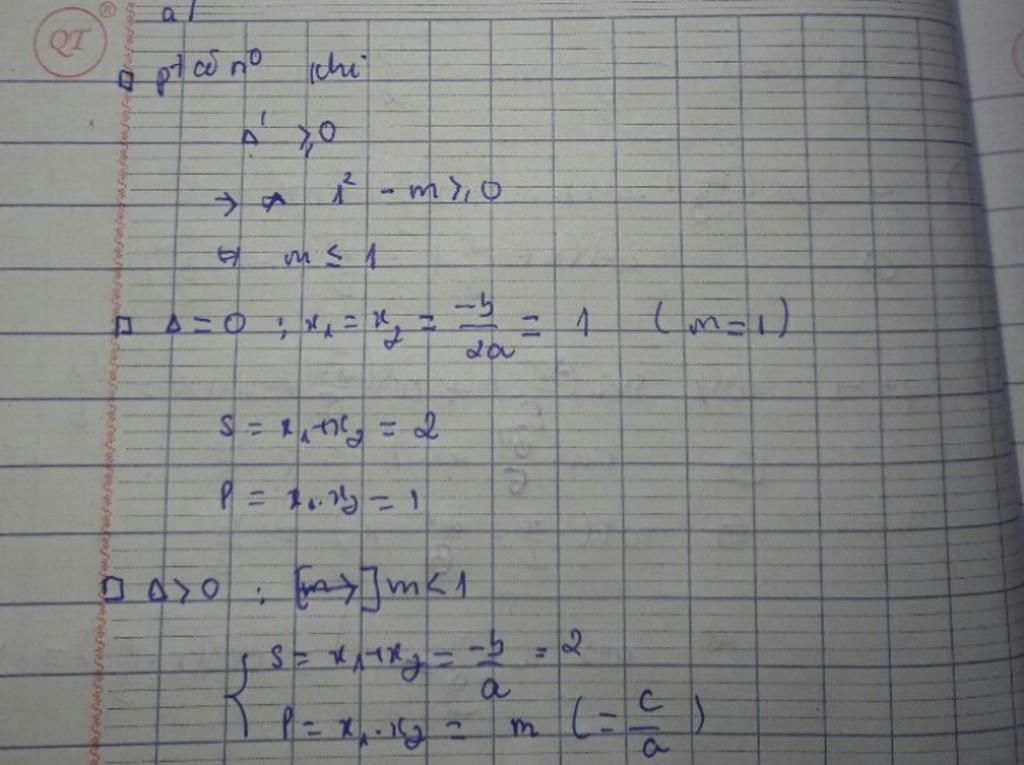 QT ®
a/
□ pt có n⁰ khi
Δ' ≥ 0
→ 1² - m ≥ 0
⇔ m ≤ 1
□ Δ = 0 ; x₁ = x₂ = -b/2a = 1 (m = 1)
S = x₁ + x₂ = 2
P = x₁.x₂ = 1
□ Δ > 0 : m < 1
{ S = x₁ + x₂ = -b/a = 2
P = x₁.x₂ = m (= c/a)